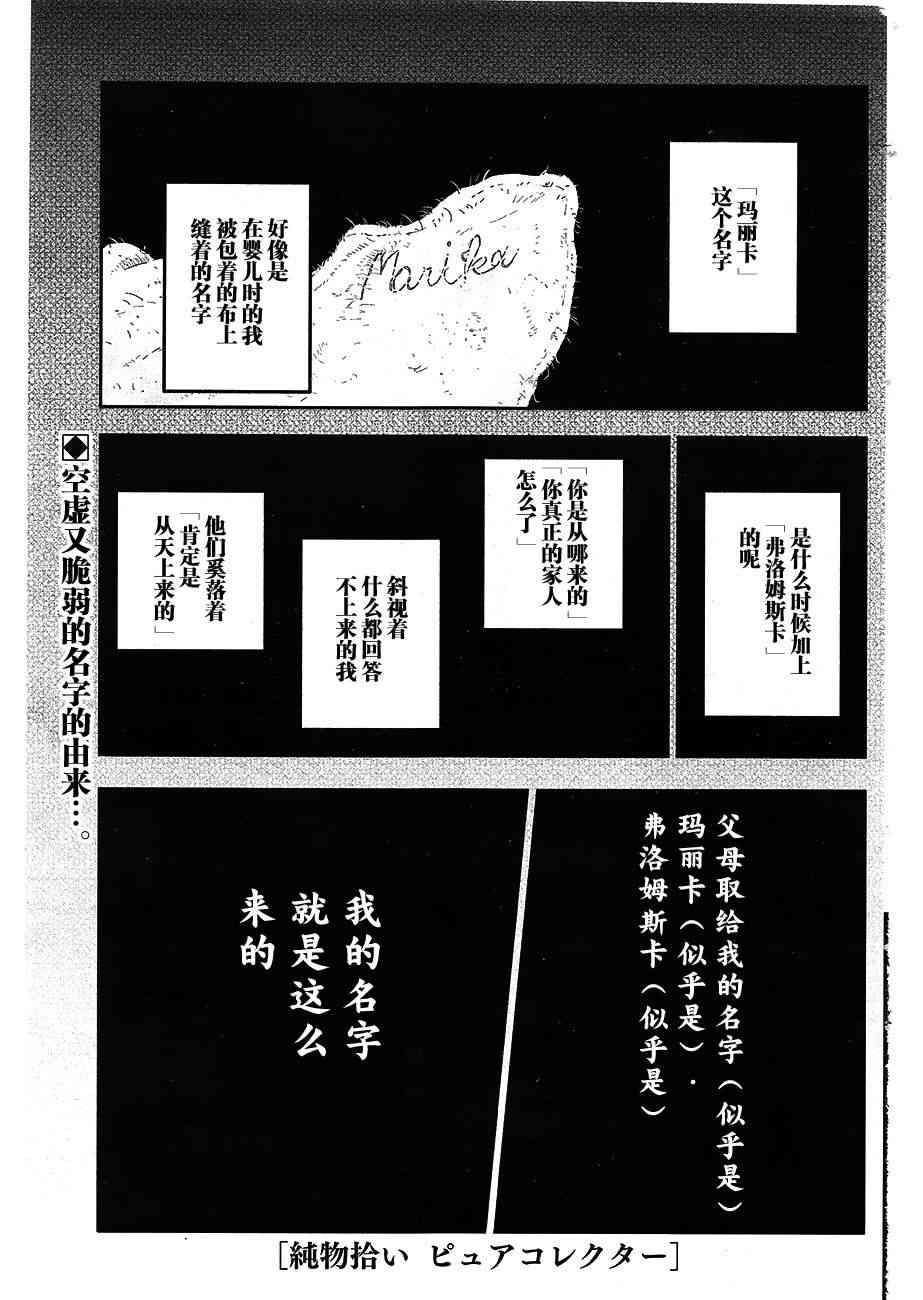 「玛丽卡」
这个名字
Marika
好像是
在婴儿时的我
被包着的布上
缝着的名字
是什么时候加上
「弗洛姆斯卡」
的呢
「你是从哪来的」
「你真正的家人
怎么了」
斜视着
什么都回答
不上来的我
他们奚落着
「肯定是
从天上来的」
父母取给我的名字(似乎是)
玛丽卡(似乎是)．
弗洛姆斯卡(似乎是)
我的名字
就是这么
来的
◆空虚又脆弱的名字的由来…。
［純物拾い ピュアコレクター］